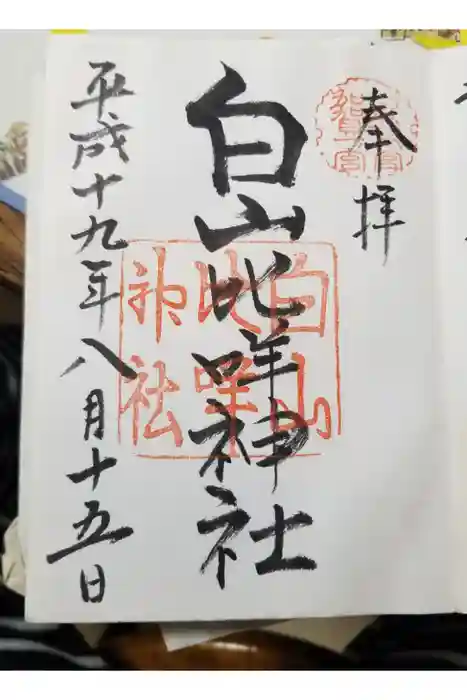 奉拝
白山比咩神社
平成十九年八月十五日
白山
比咩
神社